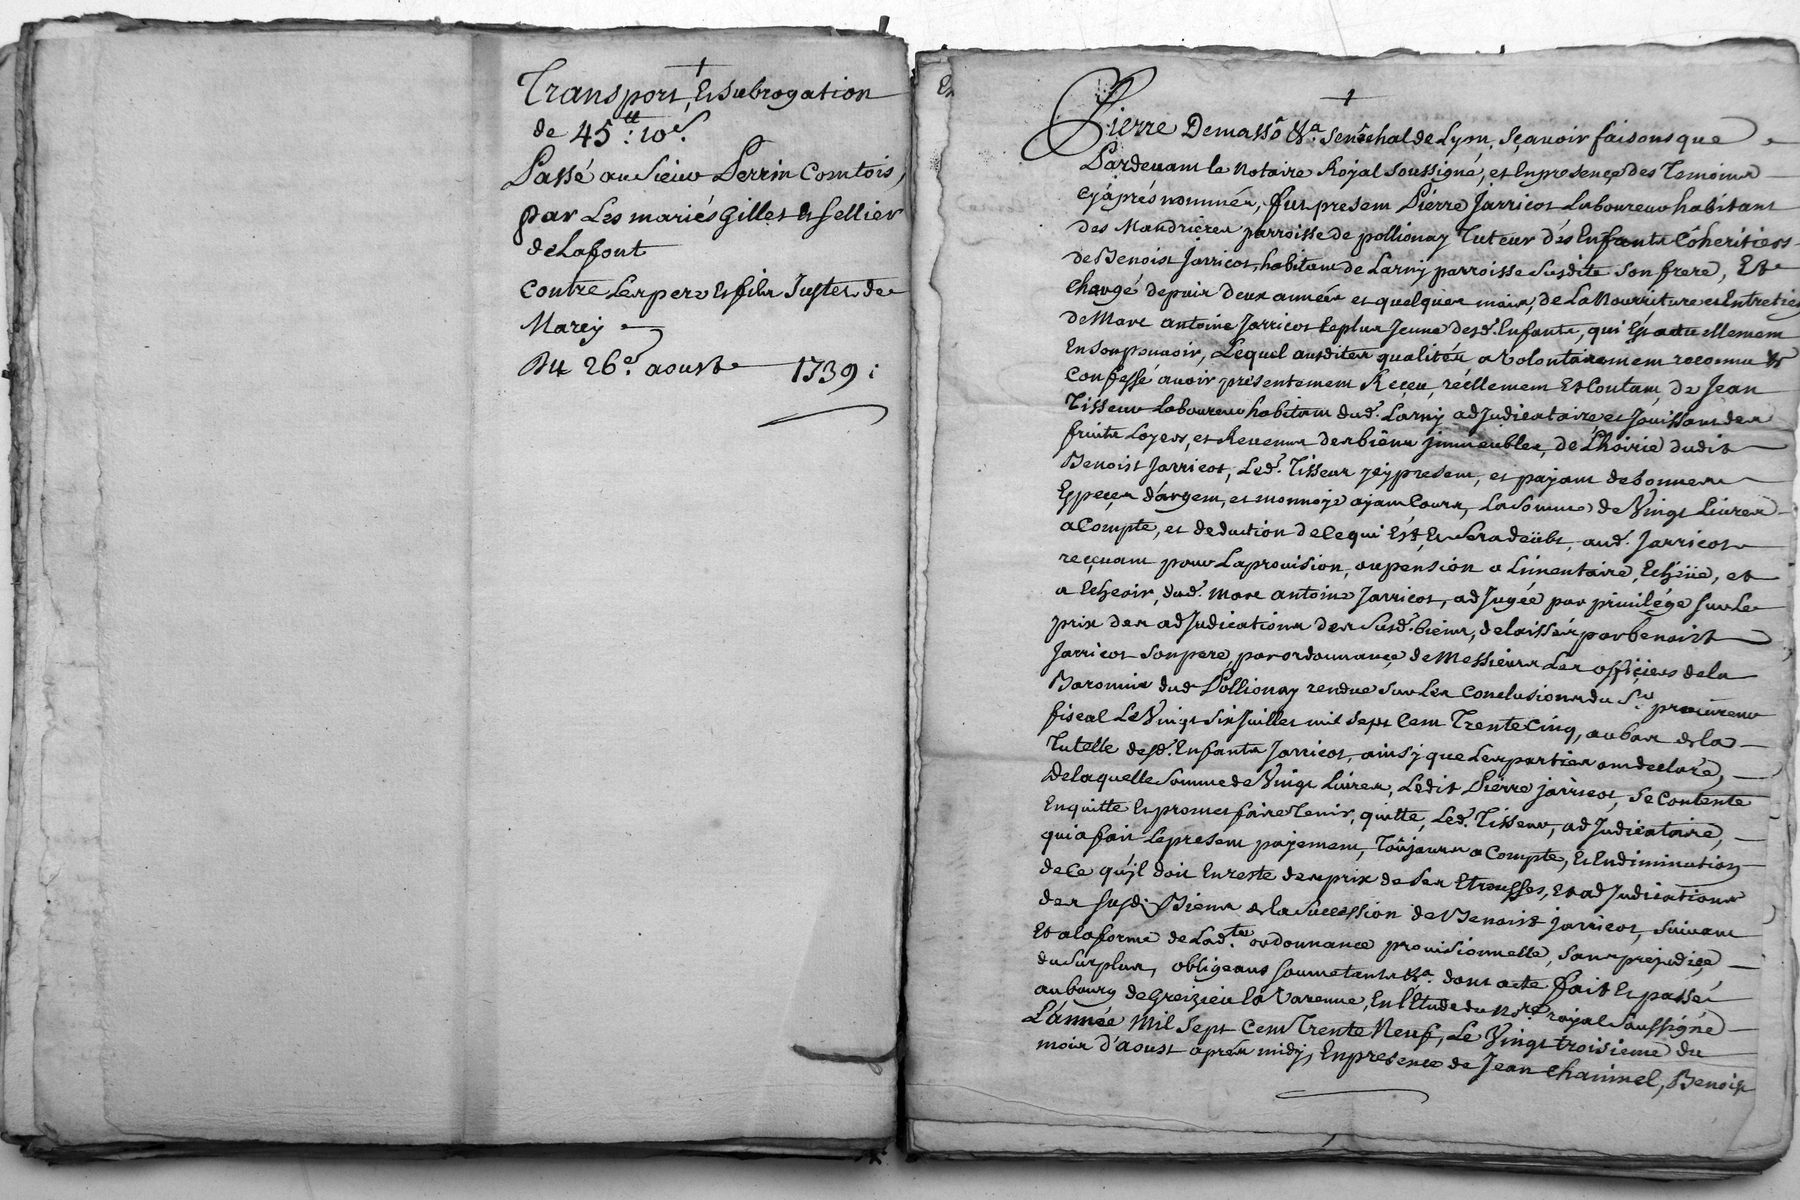 Transport, Et subrogation
de 45ʰᵗ: 10ˢ.
Passé au Sieur Perrin Comtois,
par Les mariés Gillet et Sellier
de Lafont
Contre Les pere Et fils Juster de
Marcy
Du 26ᵉ. aoust 1739:
Pierre Demasso &ᵃ. Senéchal de Lyon, Sçavoir faisons que
Pardevant le Notaire Royal Soussigné, et En presence des Temoins
Cy aprés nommés, fut present Pierre Jarricot Laboureur habitant
des Maudriéres parroisse de pollionay Tuteur dés Enfants Cóheritiers
de Benoist Jarricot, habitant de Larny parroisse Susdite Son frere, Et
Chargé depuis deux années et quelques mois, de La Nourriture et Entretien
de Marc antoine Jarricot Le plus Jeune desd. Enfants, qui Est actuellement
En Son pouvoir, Lequel ausdites qualités a Volontairement reconnu &
Confessé avoir présentement Reçeu, réellement Et Contant, de Jean
Tisseur Laboureur habitant dud. Larny adjudicataire et Jouissant des
fruits Loyers, et Revenus des biéns immeubles, de L'hoirie dudit
Benoist Jarricot, Led. Tisseur icy present, et payant de bonnes
Especes d'argent, et monnoye ayant Cours, La Somme de Vingt Livres
a Compte, et deduction de Ce qui Est, Et Sera deübt, aud. Jarricot
reçevant pour La provision, ou pension alimentaire, Echeüe, et
a Echeoir, dud. Marc antoine Jarricot, adjugée par privilége Sur Le
prix des adjudications des Susd. biens, delaissés par benoist
Jarricot Son pere, par ordonnançe de Messieurs Les officiers de la
Baronnie dud. Pollionay rendue Sur Les Conclusions du Sʳ. procureur
fiscal Le Vingt Six Juillet mil Sept Cent Trente Cinq, au bas de la
Tutelle desd. Enfants Jarricot, ainsy que Les parties ont declaré,
De laquelle Somme de Vingt Livres, Lédit Pierre jarricot, Se Contente
En quitte Et promet faire Tenir, quitte, Led. Tisseur, adjudicataire,
qui a fait Le present payement, Toûjours a Compte, Et En diminution
de Ce qu'jl doit En reste des prix de Ses Etrousses, Et adjudications
des Susd. Biens de la Succession de Benoist jarricot, Suivant
Et a la forme de Ladᵗᵉ. ordonnance provisionnelle, Sans prejudiçe
du Surplus, obligeans Soumetants &ᵃ. dont acte fait Et passé
au bourg de Greizieu la Varenne, En l'Etude du Noʳᵉ. royal Soussigné
L'année Mil Sept Cent Trente Neuf, Le Vingt troisieme du
mois d'aoust aprés midy, En presence de Jean Chaninel, Benoist